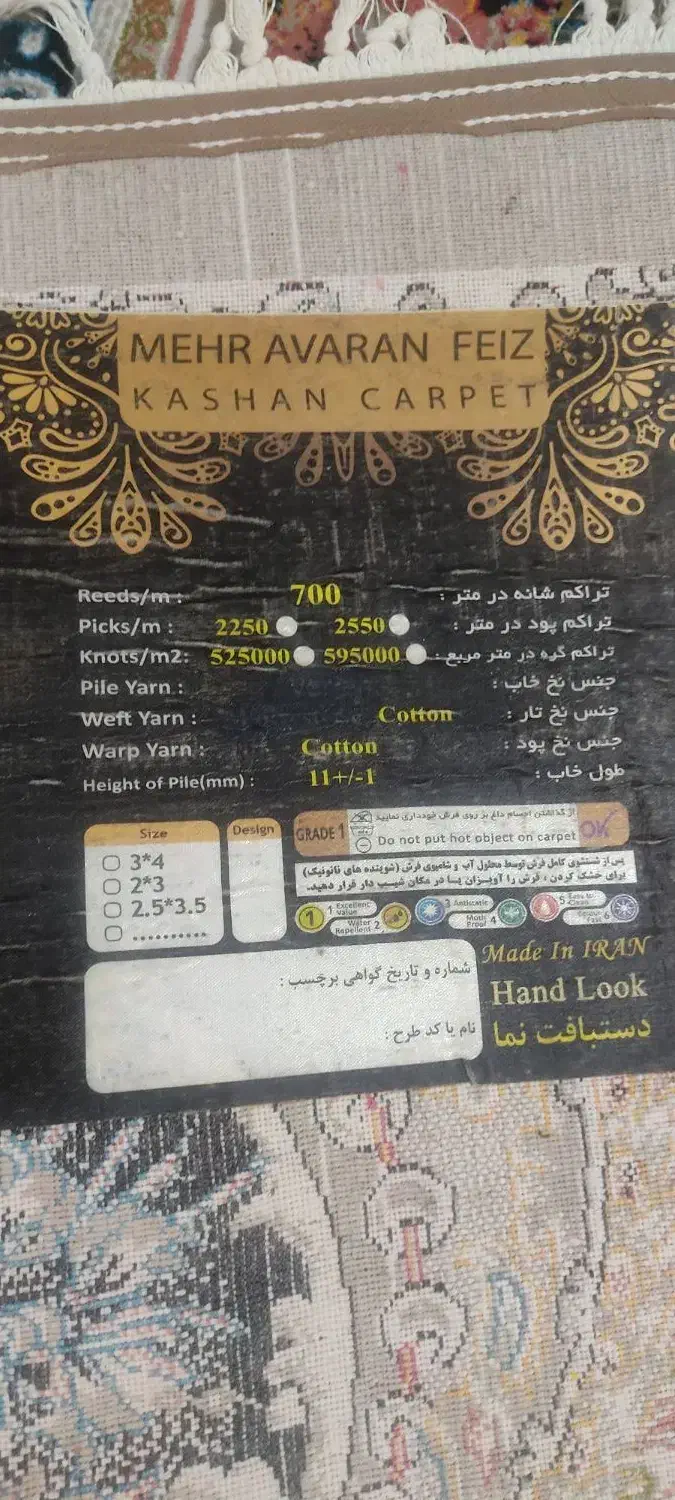 MEHR AVARAN FEIZ
KASHAN CARPET
Reeds/m : 700 تراکم شانه در متر :
Picks/m : 2250 2550 تراکم پود در متر :
Knots/m2: 525000 595000 تراکم گره در متر مربع :
Pile Yarn : جنس نخ خاب :
Weft Yarn : Cotton جنس نخ تار :
Warp Yarn : Cotton جنس نخ پود :
Height of Pile(mm) : 11+/-1 طول خاب :
Size
3*4
2*3
2.5*3.5
..........
Design
GRADE 1
از گذاشتن اجسام داغ بر روی فرش خودداری نمایید
Do not put hot object on carpet
OK
پس از شستشوی کامل فرش توسط محلول آب و شامپوی فرش (شوینده های نانونیک)
برای خشک کردن ، فرش را آویزان یا در مکان شیب دار قرار دهید.
1 1 Excellent Value
Water Repellent 2
3 Antistatic
Moth Proof 4
5 Easy to Clean
Colour Fast 6
Made In IRAN
Hand Look
دستبافت نما
شماره و تاریخ گواهی برچسب :
نام یا کد طرح :